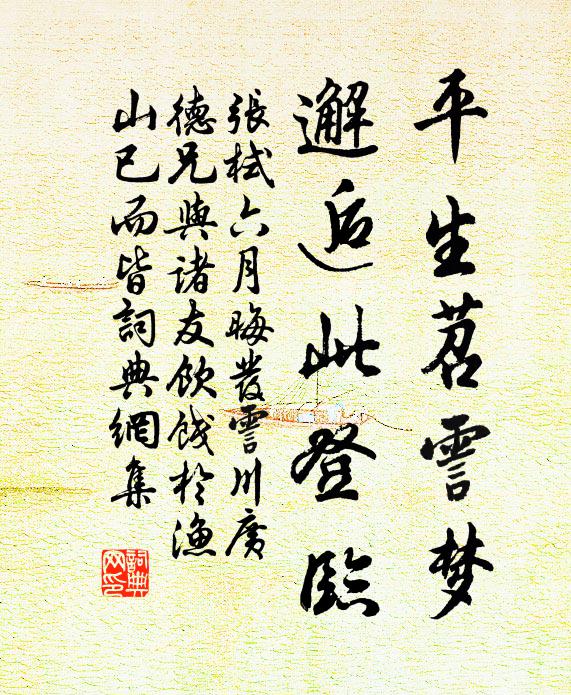 平生苕霅梦
邂逅此登臨
張栻六月晦發霅川廣
德兄與諸友飲餞於漁
山已而皆詞典網集
詞典
网印